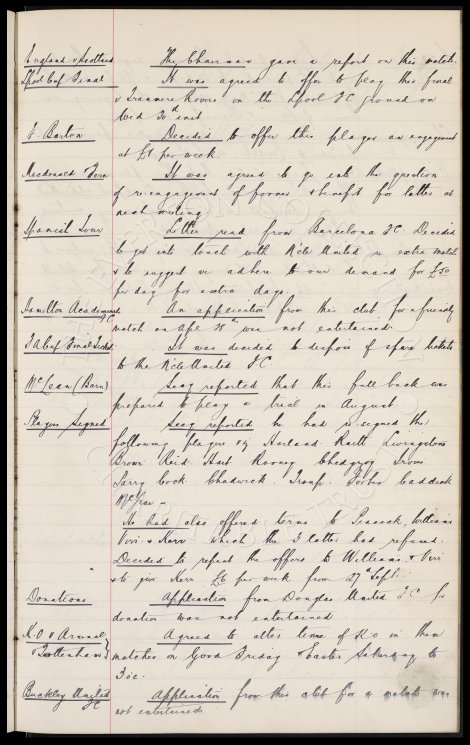 England v Scotland The Chairman gave a report on this match.
L'pool Cup Final It was agreed to offer to play this final
v Tranmere Rovers on the L'pool F.C ground on
Wed 30th inst
J. Barton Decided to offer this player an engagement
at £1 per week.
Macdonald & Fern It was agreed to go into the question
of re-engagement of former & benefit for latter at
next meeting
Spanish Tour Letter read from Barcelona F.C. Decided
to get into touch with N'cle United re extra match
& to suggest we adhere to our demand for £50
per day for extra days.
Hamilton Academical FC An application from this club for a friendly
match on Apl 28th was not entertained.
F A Cup Final Tickets It was decided to dispose of spare tickets
to the N'cle United FC
McLean (Barn) Secy reported that this full back was
prepared to play a trial in August.
Players Signed Secy reported he had re-signed the
following players viz Harland. Raitt Livingstone
Brown Reid. Hart Rooney Chedgzoy Irvine
Parry Cock. Chadwick. Troup. Forbes Caddick
McGraw
He had also offered terms to Peacock, Williams
Virr & Kerr which the 3 latter had refused.
Decided to repeat the offers to Williams & Virr
& to give Kerr £6 per week from 27th Sept.
Donations Application from Douglas United F.C for
donation was not entertained.
K.O v Arsenal Agreed to alter time of K.O in these
& Tottenham matches on Good Friday & Easter Saturday to
3 o/c.
Buckley United FC Application from this club for a match was
not entertained